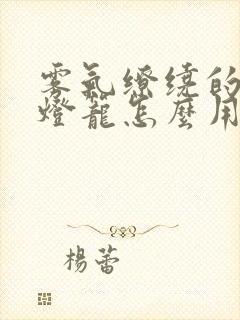 雾氣繚绕的
燈籠怎麼用
楊蕾